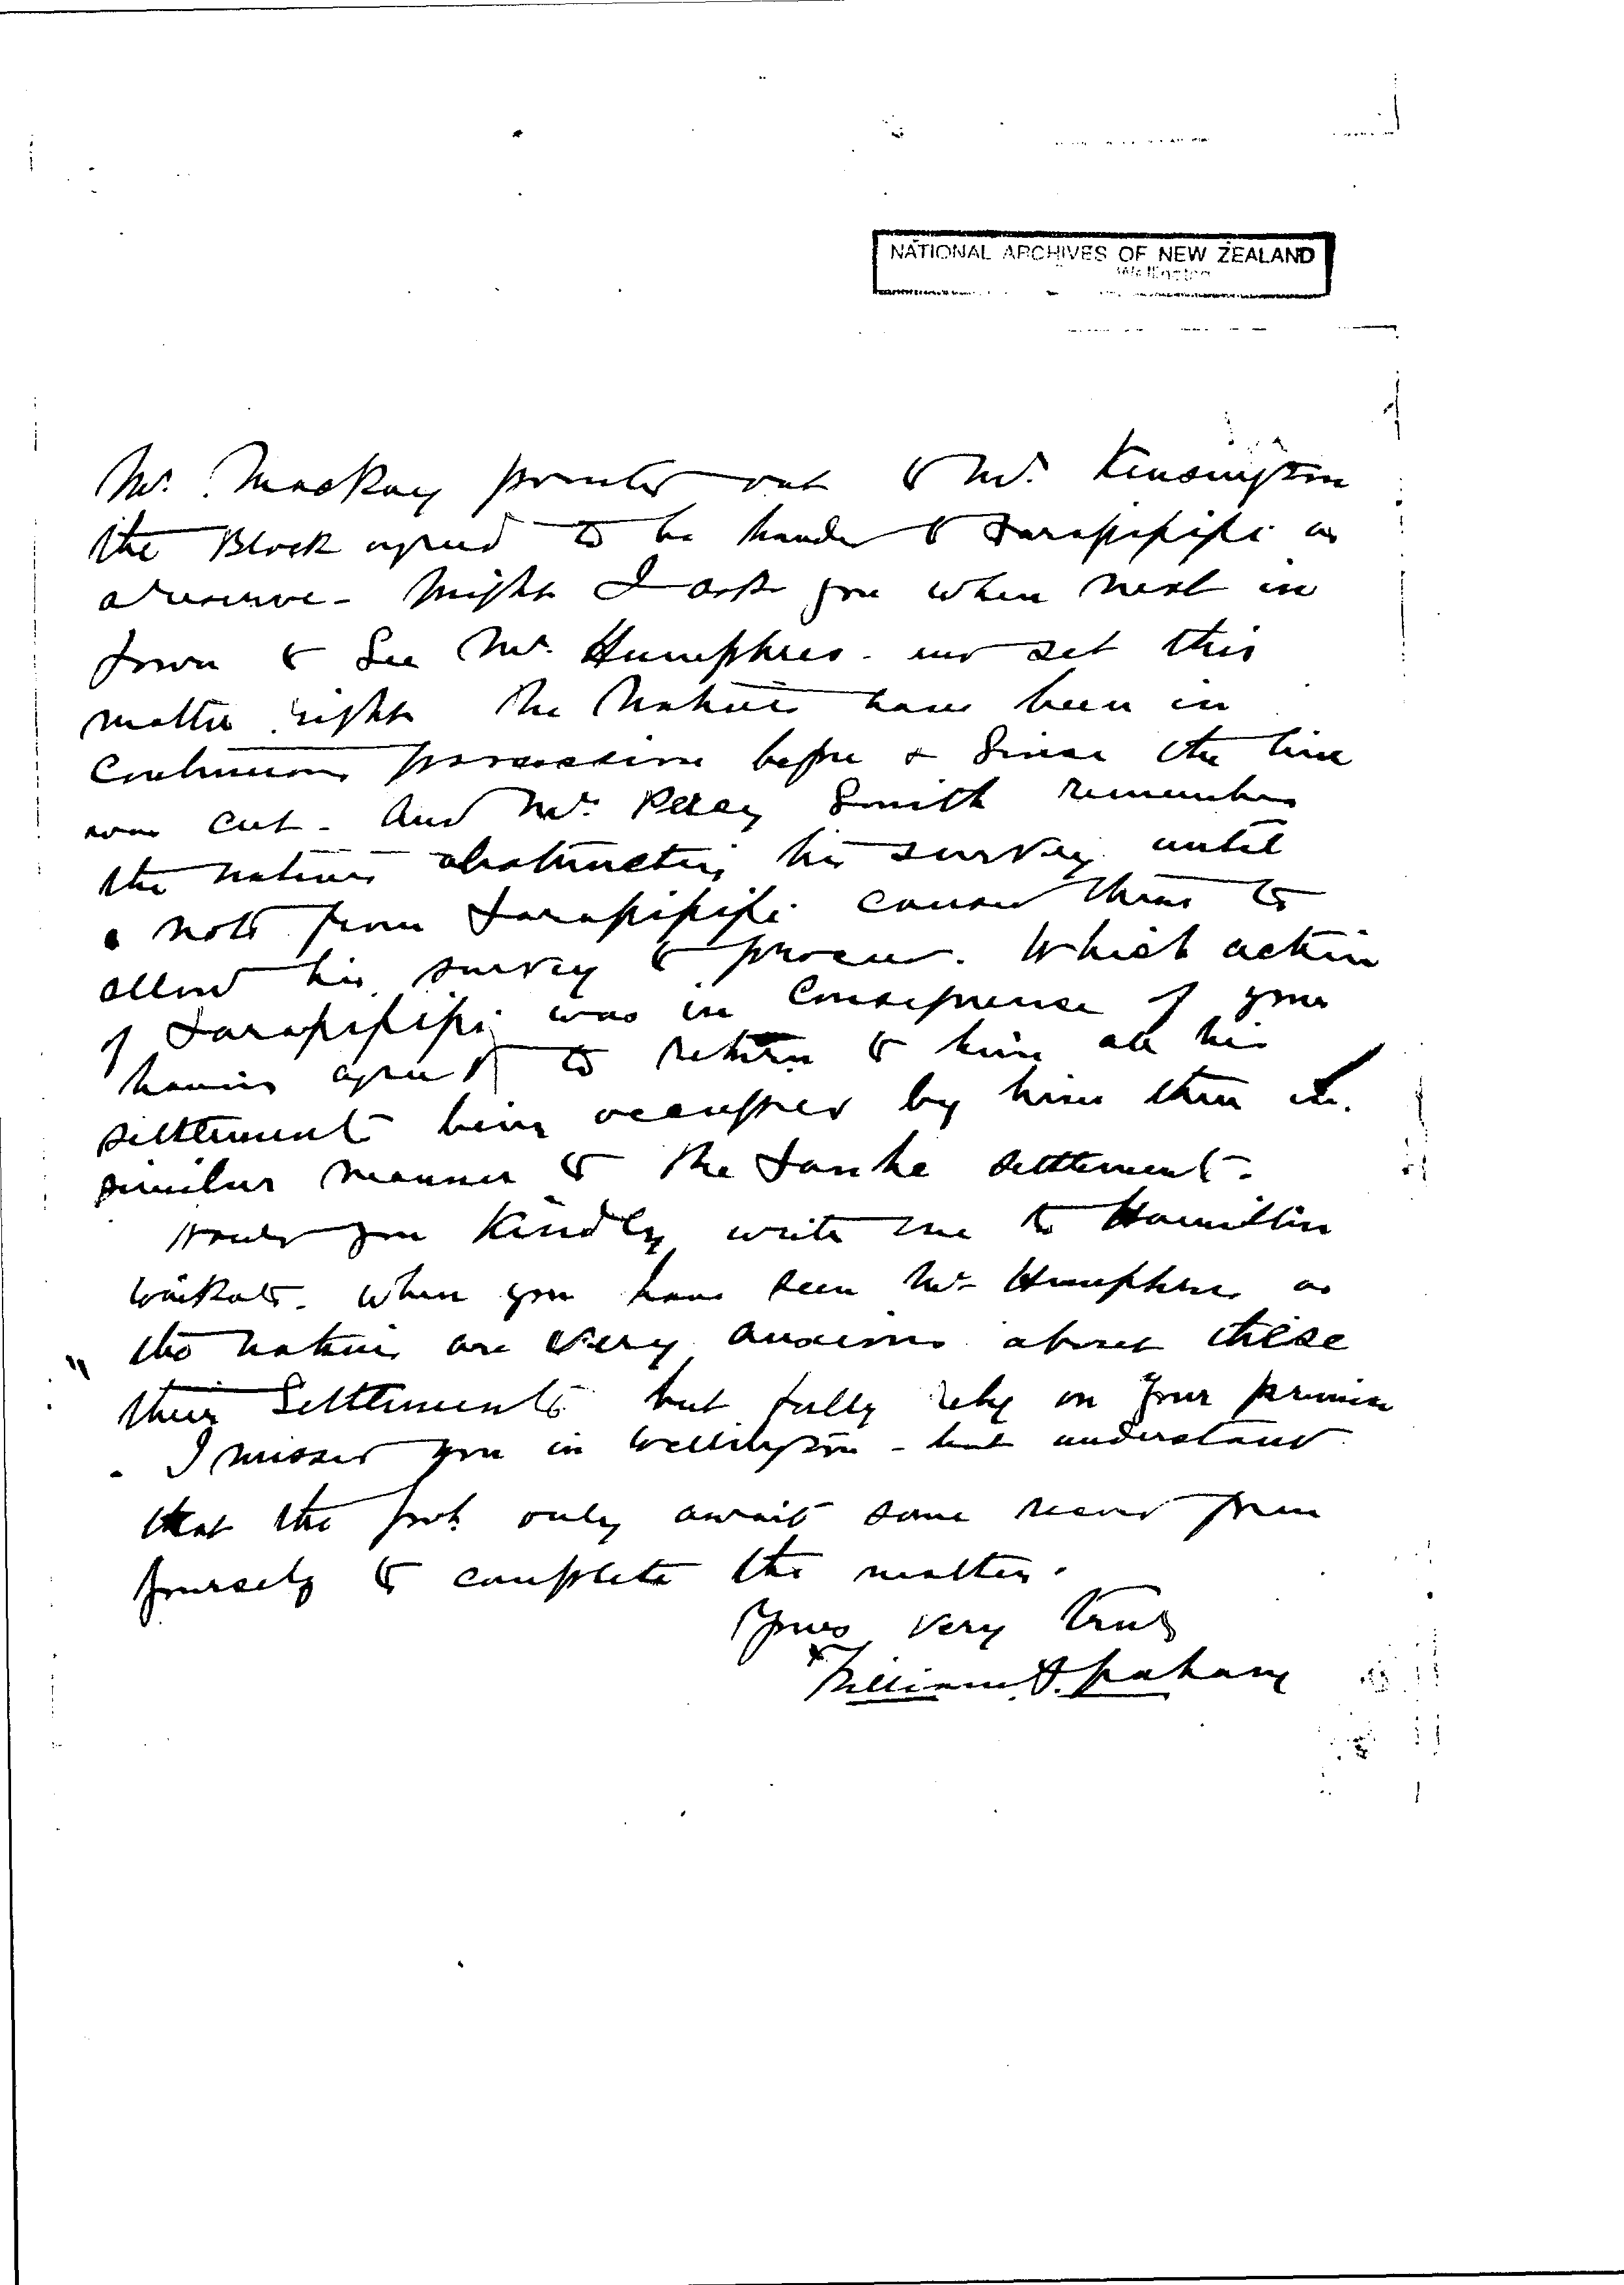 NATIONAL ARCHIVES OF NEW ZEALAND
Wellington
Mr. Mackay pointed out to Mr. Kensington
the Block agreed to be handed to Tarapipipi as
a reserve - Might I ask you when next in
Town to See Mr. Humphries - and set this
matter right The Natives have been in
Continuous possession before & Since the line
was cut - And Mr. Percy Smith remembers
the natives obstructing his survey until
a note from Tarapipipi caused them to
allow his survey to proceed. Which action
of Tarapipipi was in Consequence of your
having agreed to return to him all his
settlements being occupied by him then in
similar manner to the settlement.
Would you Kindly write me to Hamilton
Waikato. When you have seen Mr Humphries as
the natives are very anxious about these
their Settlements but fully rely on your promise
I missed you in Wellington - but understand
that the Govt. only await some record from
yourself to complete the matter.
Yours very truly
William A. Graham